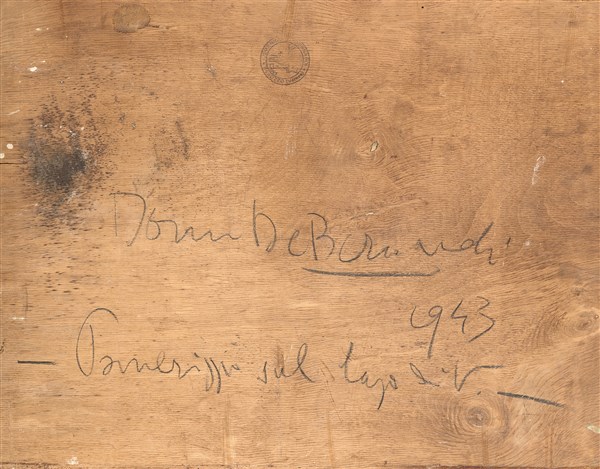 Domm De Bernardi
1943
— Pomeriggio sul lago di V. —